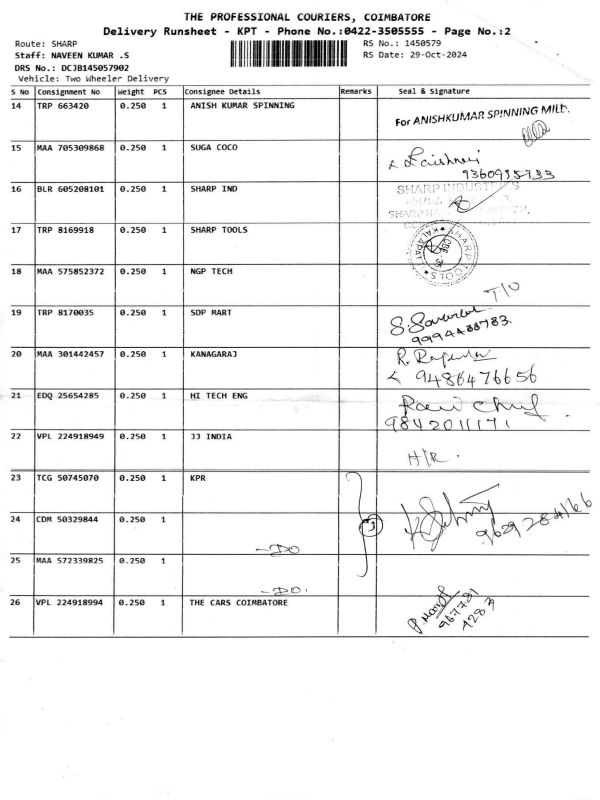 THE PROFESSIONAL COURIERS, COIMBATORE
Delivery Runsheet - KPT - Phone No.:0422-3505555 - Page No.:2
Route: SHARP
RS No.: 1450579
Staff: NAVEEN KUMAR .S
RS Date: 29-Oct-2024
DRS No.: DCJB145057902
Vehicle: Two Wheeler Delivery
S No Consignment No Weight PCS Consignee Details Remarks Seal & Signature
14 TRP 663420 0.250 1 ANISH KUMAR SPINNING For ANISHKUMAR SPINNING MILL.
15 MAA 705309868 0.250 1 SUGA COCO
9360955733
16 BLR 605208101 0.250 1 SHARP IND SHARP INDUSTRIES
17 TRP 8169918 0.250 1 SHARP TOOLS SHARP TOOLS
18 MAA 575852372 0.250 1 NGP TECH T/O
19 TRP 8170035 0.250 1 SDP MART
9994488783
20 MAA 301442457 0.250 1 KANAGARAJ
9486476656
21 EDQ 25654285 0.250 1 HI TECH ENG
9842011171
22 VPL 224918949 0.250 1 JJ INDIA H/R.
23 TCG 50745070 0.250 1 KPR
24 CDM 50329844 0.250 1 3 9629284166
-DO
25 MAA 572339825 0.250 1
-DO.
26 VPL 224918994 0.250 1 THE CARS COIMBATORE